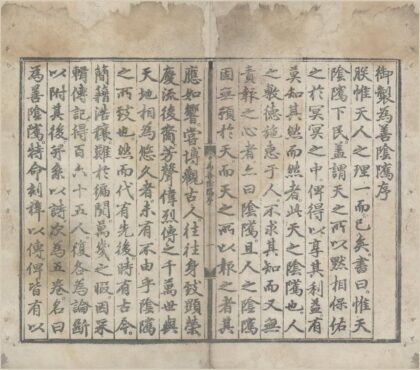 御製為善陰隲序
朕惟天人之理一而已矣書曰惟天
陰隲下民蓋謂天之所以默相保佑
之於冥冥之中俾得以享其利益有
莫知其然而然者此天之陰隲也人
之敷德施惠于人不求其知而又無
責報之心者亦曰陰隲且人之陰隲
固無預於天而天之所以報之者其
應如響嘗博觀古人往往身致顯榮
慶流後裔芳聲偉烈傳之千萬世與
天地相為悠久者未有不由乎陰隲
之所致也然而代有先後時有古今
簡籍浩穰難於徧閱萬幾之暇因采
輯傳記得百六十五人復各為論斷
以附其後并系以詩次為五卷名曰
為善陰隲特命刻梓以傳俾皆有以